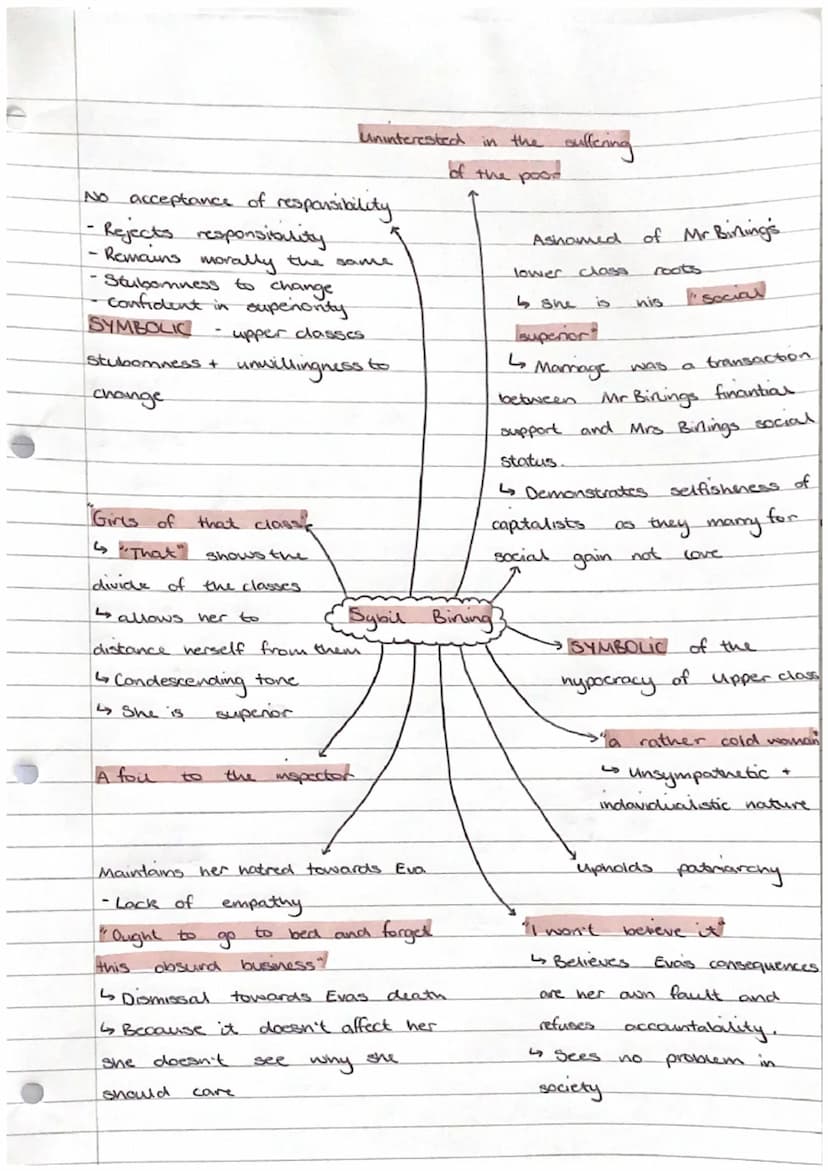 Uninterested in the suffering
of the poor
No acceptance of responsibility
- Rejects responsibility
- Remains morally the same
- Stubornness to change
- Confident in superiority
SYMBOLIC - upper classes
stubornness + unwillingness to
change
Ashamed of Mr Birling's
lower class roots
↳ she is his "social
superior"
↳ Marriage was a transaction
between Mr Birlings finantial
support and Mrs Birlings social
status.
↳ Demonstrates selfishness of
capitalists as they marry for
social gain not love
"Girls of that class"
↳ "That" shows the
divide of the classes
↳ allows her to
distance herself from them
↳ Condescending tone
↳ She is superior
Sybil Birling
SYMBOLIC of the
hypocracy of upper class
"a rather cold woman"
↳ Unsympathetic +
indavidualistic nature
A foil to the inspector
Maintains her hatred towards Eva
- Lack of empathy
"Ought to go to bed and forget
this absurd business"
↳ Dismissal towards Evas death
↳ Because it doesn't affect her
she doesn't see why she
should care
Upholds patriarchy
"I won't believe it"
↳ Believes Evas consequences
are her own fault and
refuses accountability.
↳ Sees no problem in
society